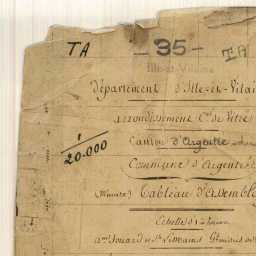 TA - 35 - TA
Ille-et-Vilaine
Département d'Ille-et-Vilai
arrondissement C.al de Vitré
Canton d'Argentré
Commune d'Argentré
1/20.000
(Minute) Tableau d'Assembla
Echelle de 1 à
Géomètres